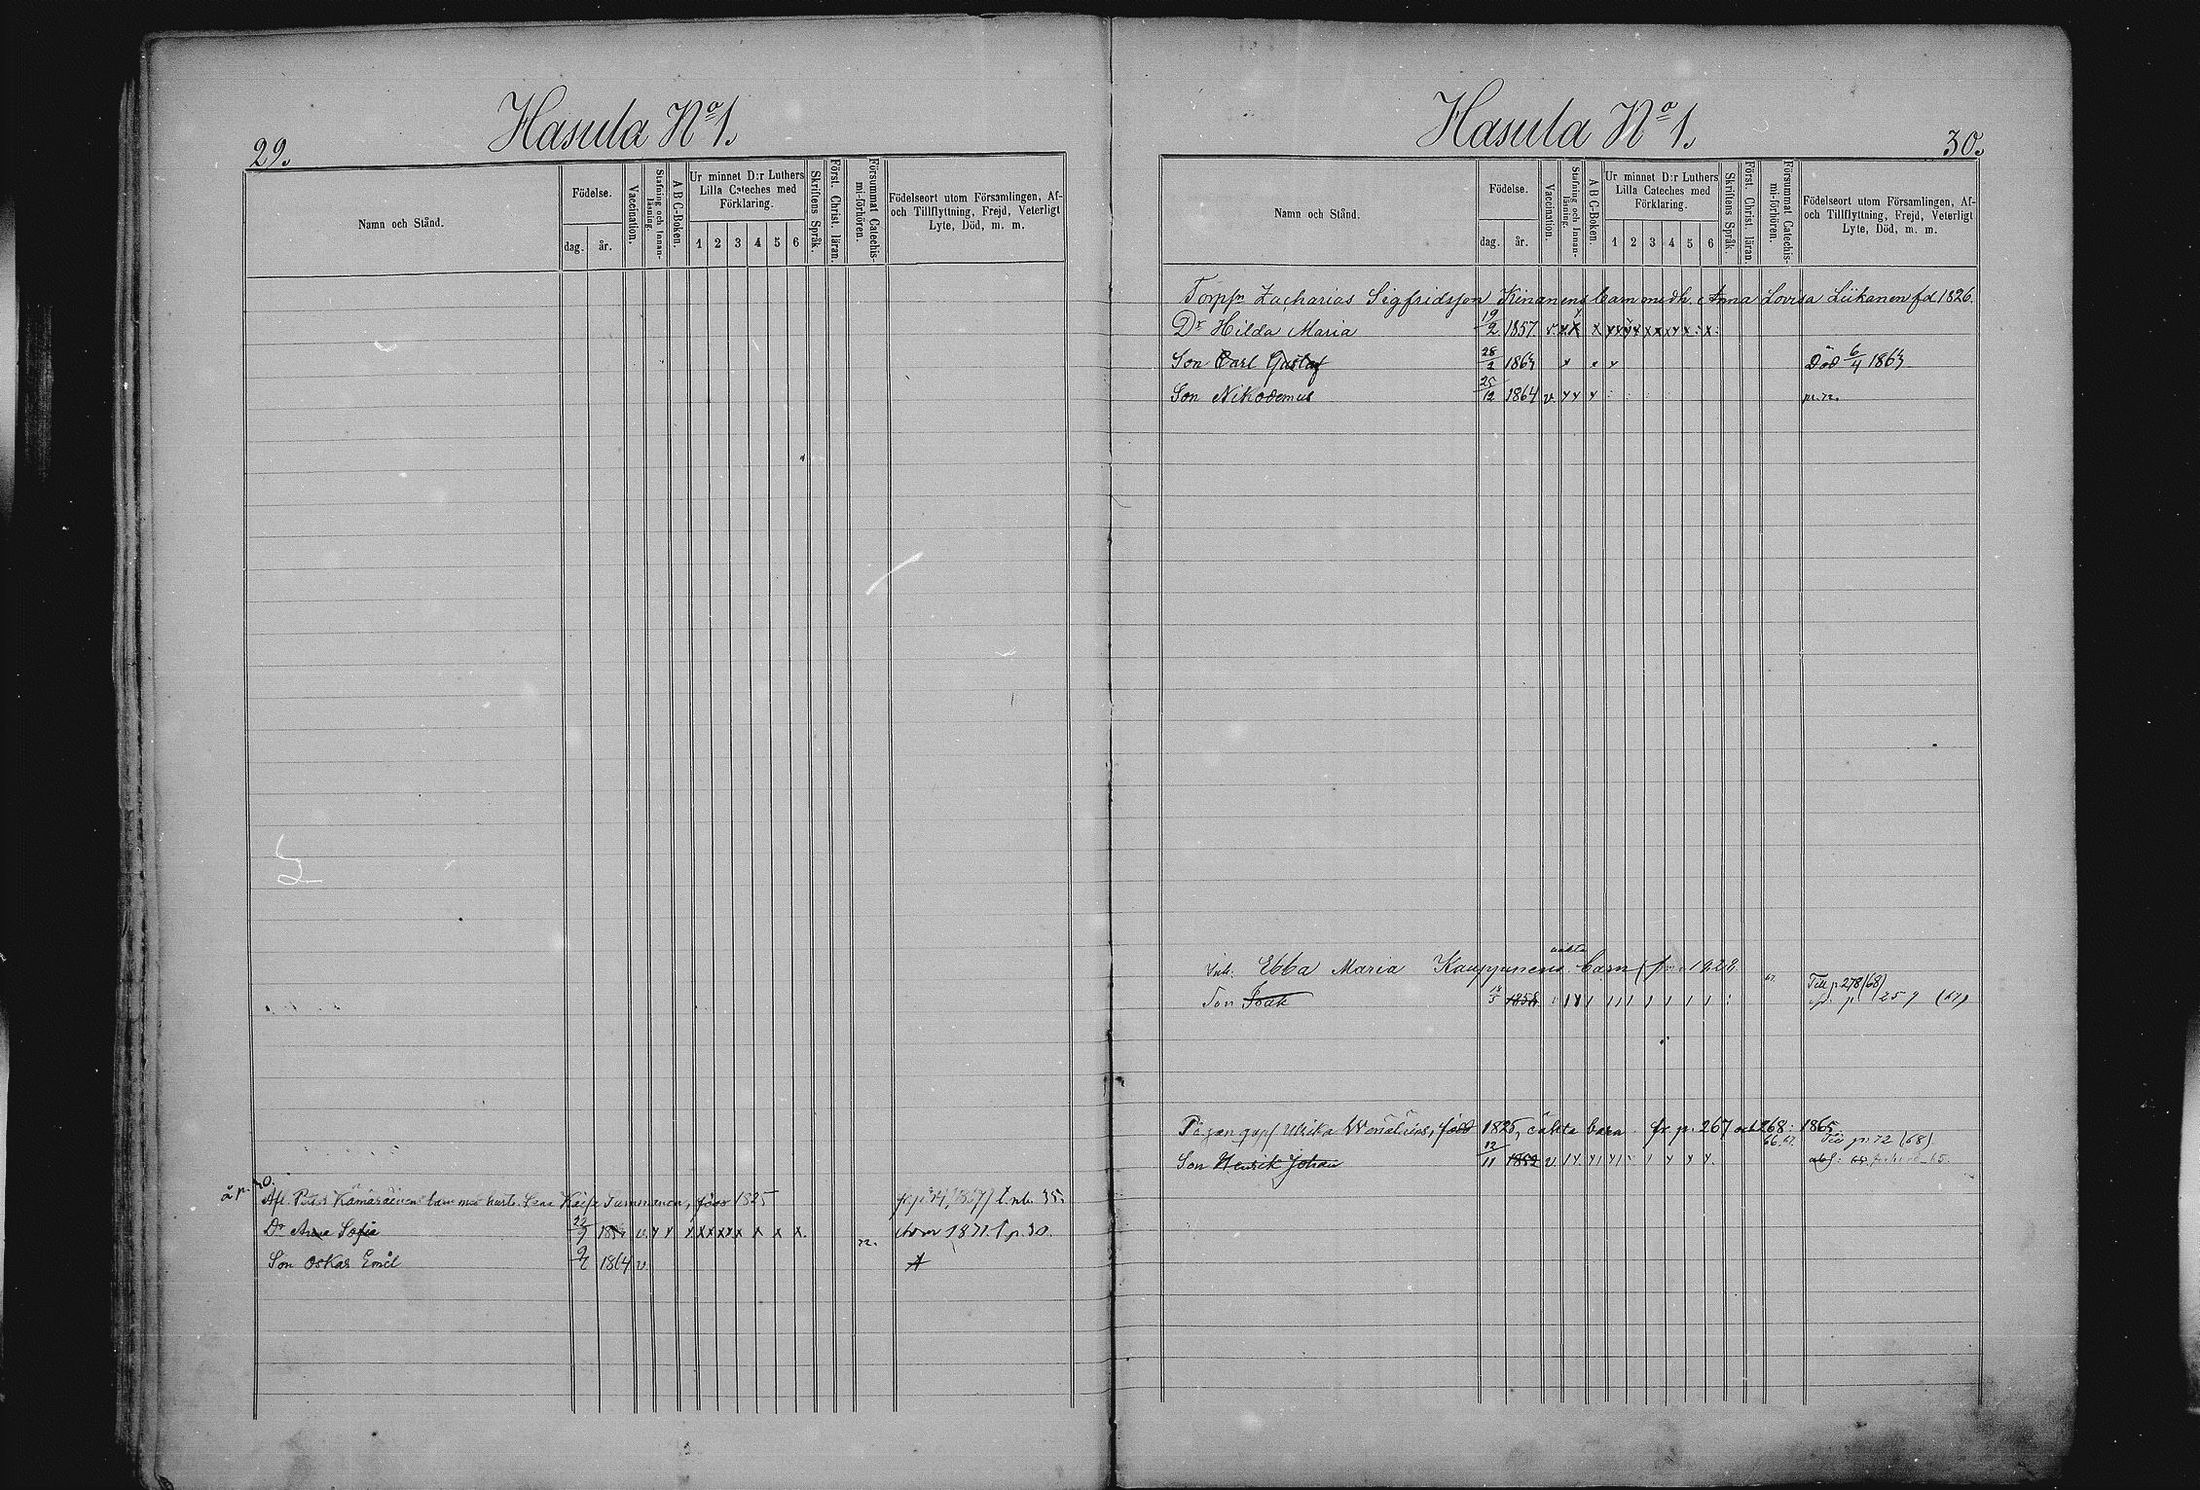 29.
Hasula No 1.
Namn och Stånd.
Födelse.
dag.
år.
Vaccination.
Stafning och Innan-läsning.
A B C-Boken.
Ur minnet D:r Luthers
Lilla Cateches med
Förklaring.
1 2 3 4 5 6
Skriftens Språk.
Först. Christ. läran.
Försummat Catechis-
mi-förhören.
Födelseort utom Församlingen, Af-
och Tillflyttning, Frejd, Veterligt
Lyte, Död, m. m.
å p. 30.
Afl. Petter barn med hust. Lena född 1825
Dr Anna Sofia 1871. p. 30.
Son Oskar Emil 1864 v
Hasula No 1.
30.
Namn och Stånd.
Födelse.
dag.
år.
Vaccination.
Stafning och Innan-läsning.
A B C-Boken.
Ur minnet D:r Luthers
Lilla Cateches med
Förklaring.
1 2 3 4 5 6
Skriftens Språk.
Först. Christ. läran.
Försummat Catechis-
mi-förhören.
Födelseort utom Församlingen, Af-
och Tillflyttning, Frejd, Veterligt
Lyte, Död, m. m.
Torp:n Zacharias Sigfridsson Kinanens barn med h. Anna Lovisa Liikanen fd 1826.
Dr Hilda Maria 19/2 1857
Son Carl Gustaf 28/2 1863 Död 6/4 1863
Son Nikodemus 25/12 1864 v.
Ebba Maria Kauppinens oäkta barn
Son 18/5 1858 Till p 278 (68)
Ulrika född 1825, oäkta barn fr. p. 267 och 268: 1865
Till p. 72 (68)
Son Henrik Johan 12/11 1852 v